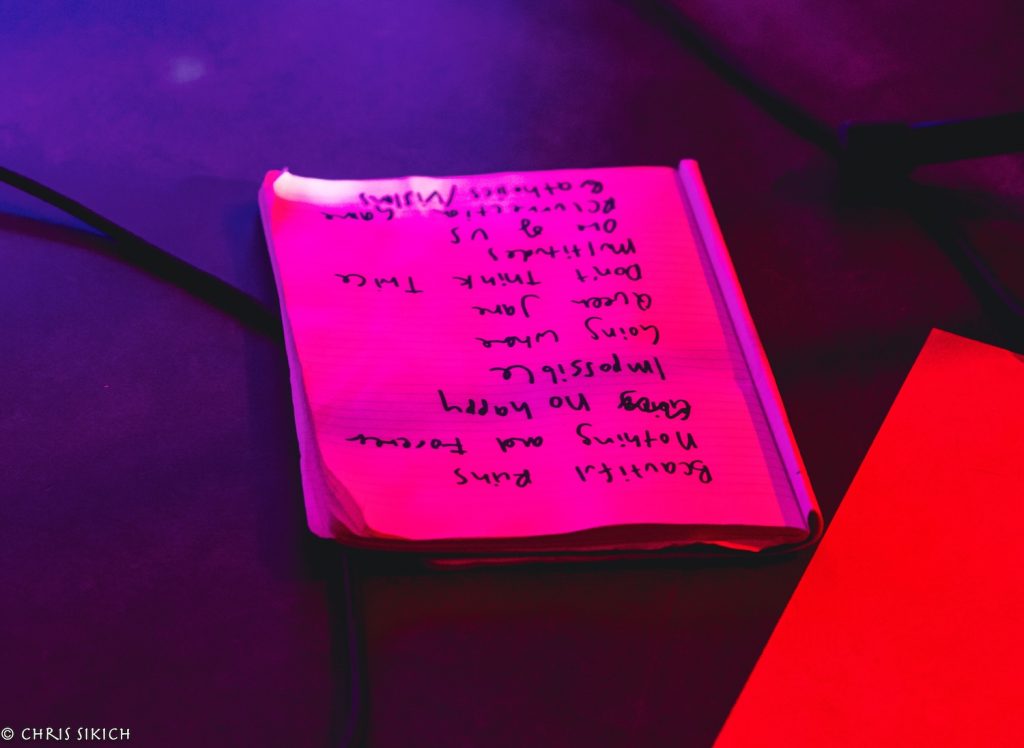 Beautiful Ruins
Nothing and Forever
No happy
Impossible
Going Where
Queen Jane
Don't Think Twice
Multitudes
One of Us
Resurrection Game
/Visions
© CHRIS SIKICH